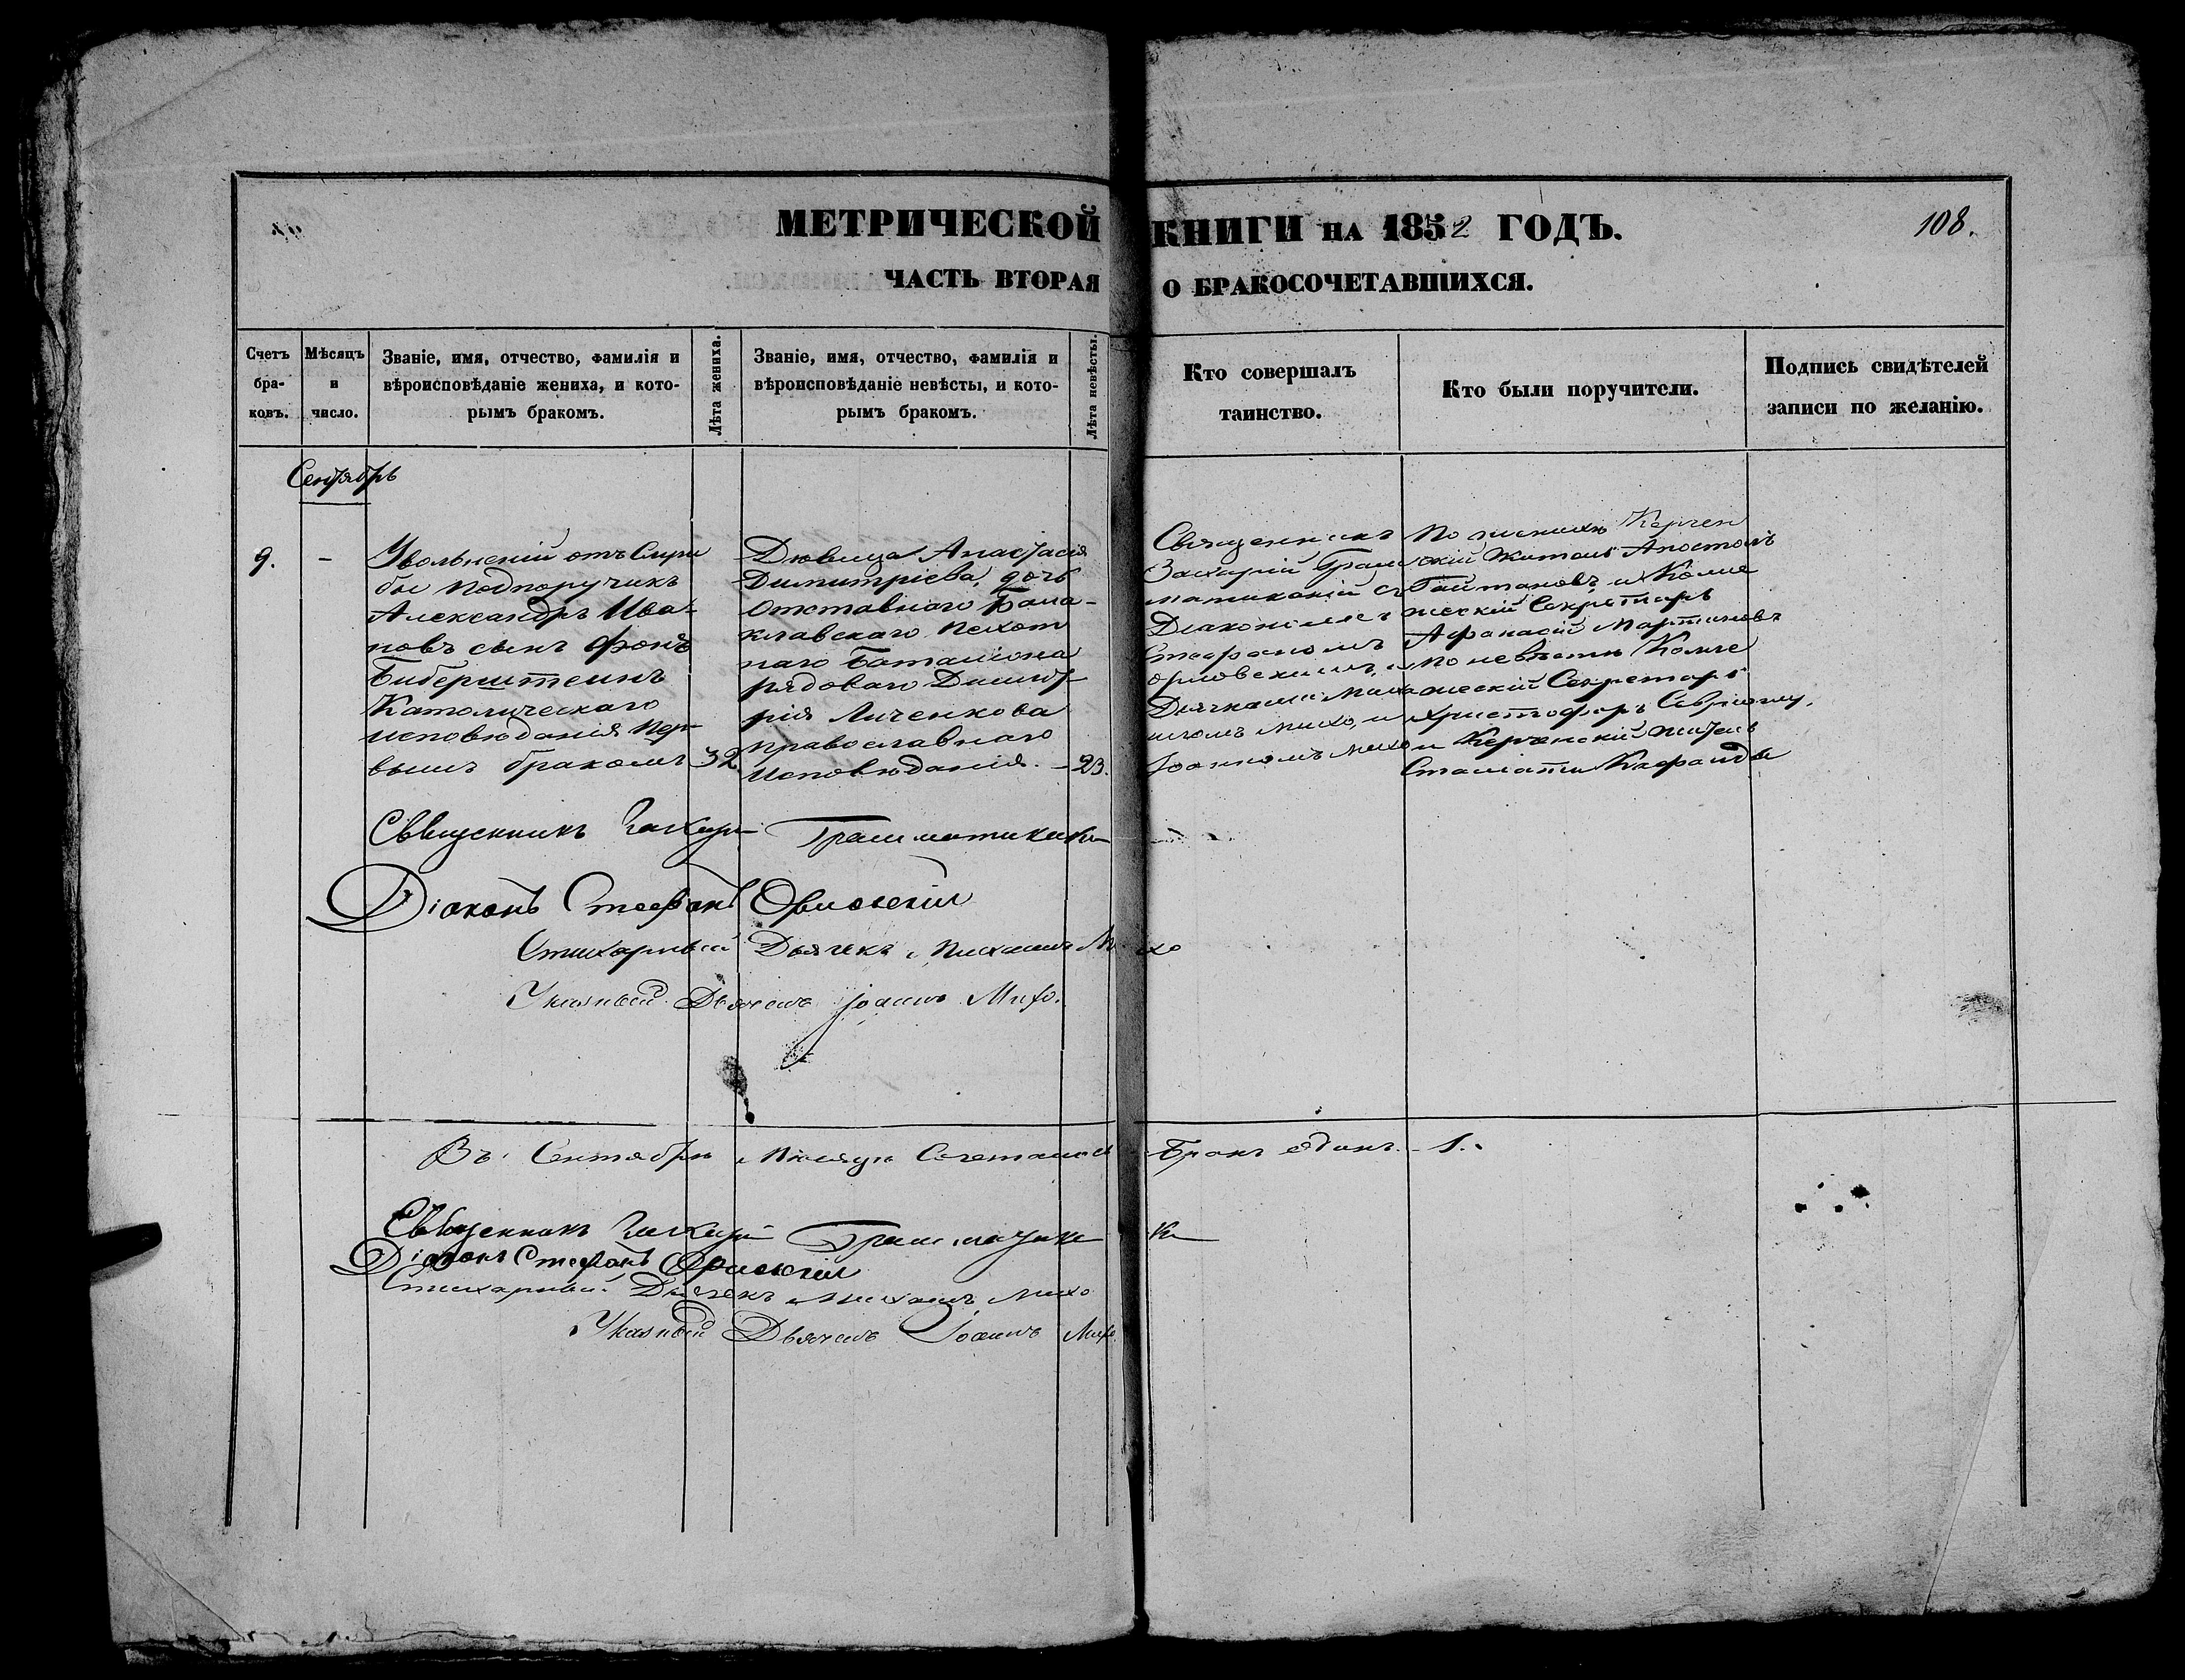 МЕТРИЧЕСКОЙ КНИГИ НА 1852 ГОДЪ.
108.
ЧАСТЬ ВТОРАЯ О БРАКОСОЧЕТАВШИХСЯ.
Счетъ бра-ковъ.
Мѣсяцъ и число.
Званіе, имя, отчество, фамилія и
вѣроисповѣданіе жениха, и кото-
рымъ бракомъ.
Лѣта жениха.
Званіе, имя, отчество, фамилія и
вѣроисповѣданіе невѣсты, и кото-
рымъ бракомъ.
Лѣта невѣсты.
Кто совершалъ
таинство.
Кто были поручители.
Подпись свидѣтелей
записи по желанію.
Сентябрь
9. -
Увольненій отъ Служ
бы Подпоручикъ
Александръ Ива-
новъ сынъ фонъ
Биберштеинъ
Католическаго
исповѣданія пер-
вымъ бракомъ 32
Дѣвица Анастасія
Димитріева, дочь
отставнаго Бала-
клавскаго пехот
наго баталіона
рядоваго Димит-
рія Личенкова
православнаго
исповѣданія. - 23.
Священникъ
Захарій Грам
матикакій съ
Діакономъ
Стефаномъ
Орловскимъ, и
Дьячками Миха
иломъ Михо, и
Іоанномъ Михо
По женихѣ Керчен
скій житель Апостолъ
Гайтановъ и Колле
жескій Секретарь
Афанасій Мартиновъ
по невѣстѣ Колле
жескій Секретарь
Христофоръ
и Керченскій житель
Стамати
Свѣщенникъ Захарій Грамматикаки
Діаконъ Стефанъ Орловскій
Стихарный Дьячекъ Михаилъ Михо
Указный Дьячекъ Іоаннъ Михо.
Въ Сентябрѣ Мѣсяцѣ Сочетался Бракъ единъ. - 1.
Свѣщенникъ Захарій Грамматикаки
Діаконъ Стефанъ Орловскій
Стихарный Дьячекъ Михаилъ Михо
Указный Дьячекъ Іоаннъ Михо